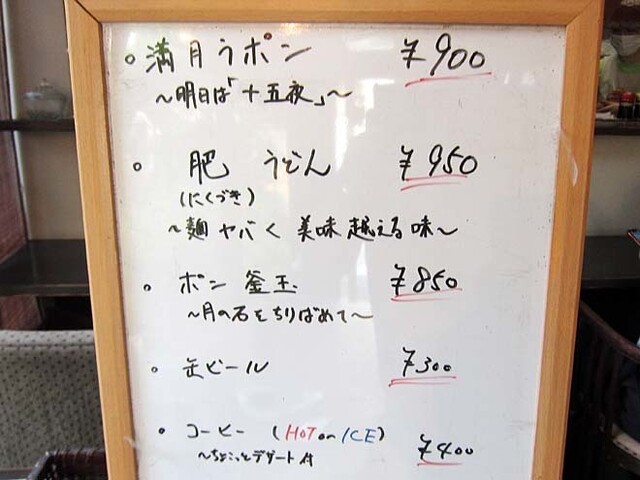 。満月うポン ¥900
～明日は「十五夜」～
。肥 うどん ¥950
(にくづき)
～麺ヤバく 美味越える味～
。ポン 釜玉 ¥850
～月の石をちりばめて～
。缶ビール ¥300
。コーヒー (HOT or ICE) ¥400
～ちょこっとデザート付